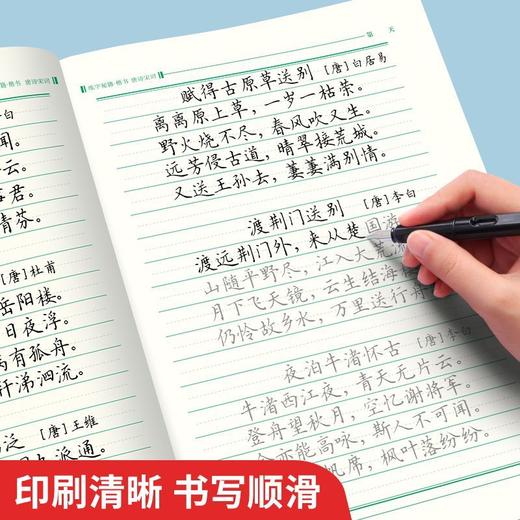 练字秘籍·楷书 唐诗宋词
第 天
赋得古原草送别 [唐]白居易
离离原上草，一岁一枯荣。
野火烧不尽，春风吹又生。
远芳侵古道，晴翠接荒城。
又送王孙去，萋萋满别情。
渡荆门送别 [唐]李白
渡远荆门外，来从楚国游
山随平野尽，江入大荒
月下飞天镜，云生结海
仍怜故乡水，万里送行舟
夜泊牛渚怀古 [唐]李白
牛渚西江夜，青天无片云。
登舟望秋月，空忆谢将军。
亦能高咏，斯人不可闻。
帆席，枫叶落纷纷。
书 唐诗宋词
白
闻。
云。
君。
清芬。
[唐]杜甫
岳阳楼。
日夜浮。
有孤舟。
轩涕泗流。
泛 [唐]王维
派通。
印刷清晰 书写顺滑